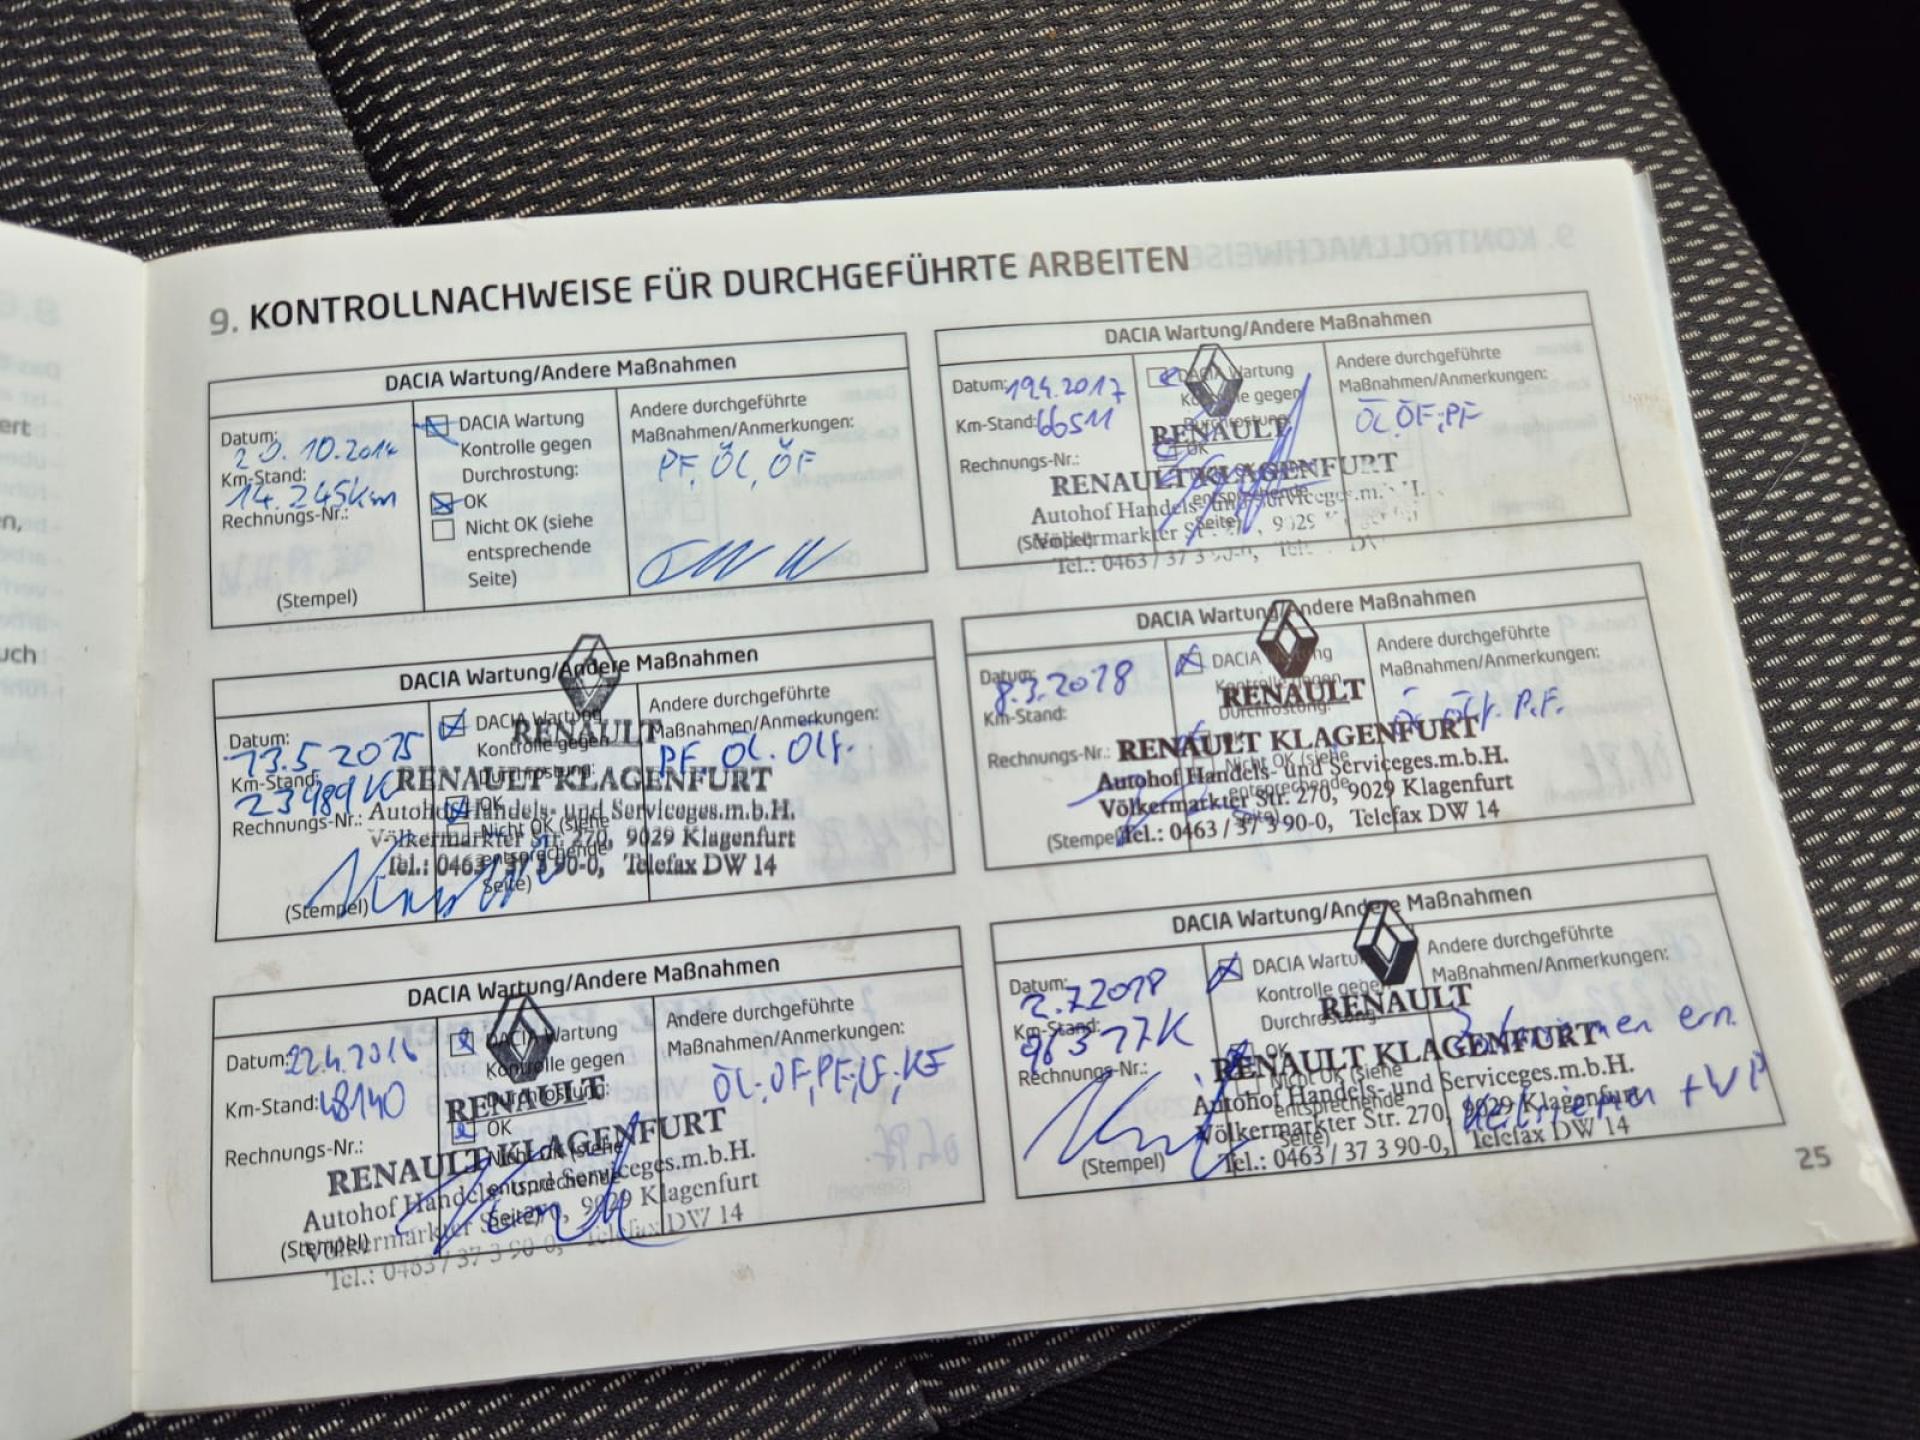 9. KONTROLLNACHWEISE FÜR DURCHGEFÜHRTE ARBEITEN
DACIA Wartung/Andere Maßnahmen
Datum:
20.10.2014
Km-Stand:
14.245km
Rechnungs-Nr.:
(Stempel)
DACIA Wartung
Kontrolle gegen
Durchrostung:
OK
Nicht OK (siehe
entsprechende
Seite)
Andere durchgeführte
Maßnahmen/Anmerkungen:
PF, ÖL, ÖF
DACIA Wartung/Andere Maßnahmen
Datum:
13.5.2015
Km-Stand:
23489K
Rechnungs-Nr.:
(Stempel)
DACIA Wartung
Kontrolle gegen
Durchrostung:
OK
Nicht OK (siehe
entsprechende
Seite)
Andere durchgeführte
Maßnahmen/Anmerkungen:
PF. ÖL. Ölf.
RENAULT
RENAULT KLAGENFURT
Autohof Handels- und Serviceges.m.b.H.
Völkermarkter Str. 270, 9029 Klagenfurt
Tel.: 0463 / 37 3 90-0, Telefax DW 14
DACIA Wartung/Andere Maßnahmen
Datum: 22.4.2016
Km-Stand: 48140
Rechnungs-Nr.:
(Stempel)
DACIA Wartung
Kontrolle gegen
Durchrostung:
OK
Nicht OK (siehe
entsprechende
Seite)
Andere durchgeführte
Maßnahmen/Anmerkungen:
ÖL, ÖF, PF, LF, KF
RENAULT
RENAULT KLAGENFURT
Autohof Handels- und Serviceges.m.b.H.
Völkermarkter Str. 270, 9029 Klagenfurt
Tel.: 0463 / 37 3 90-0, Telefax DW 14
DACIA Wartung/Andere Maßnahmen
Datum: 19.4.2017
Km-Stand: 66511
Rechnungs-Nr.:
(Stempel)
DACIA Wartung
Kontrolle gegen
Durchrostung:
OK
entsprechende
Seite)
Andere durchgeführte
Maßnahmen/Anmerkungen:
ÖL, ÖF, PF
RENAULT
RENAULT KLAGENFURT
Autohof Handels- und Serviceges.m.
Völkermarkter
Tel.: 0463 / 37 3 90-0,
DACIA Wartung/Andere Maßnahmen
Datum:
8.3.2018
Km-Stand:
Rechnungs-Nr.:
(Stempel)
DACIA Wartung
Kontrolle gegen
Durchrostung:
OK
Nicht OK (siehe
entsprechende
Seite)
Andere durchgeführte
Maßnahmen/Anmerkungen:
Ö. Ölf. P.F.
RENAULT
RENAULT KLAGENFURT
Autohof Handels- und Serviceges.m.b.H.
Völkermarkter Str. 270, 9029 Klagenfurt
Tel.: 0463 / 37 3 90-0, Telefax DW 14
DACIA Wartung/Andere Maßnahmen
Datum:
2.7.2018
Km-Stand:
96377K
Rechnungs-Nr.:
(Stempel)
DACIA Wartung
Kontrolle gegen
Durchrostung
OK
Nicht OK (siehe
entsprechende
Seite)
Andere durchgeführte
Maßnahmen/Anmerkungen:
ern.
+ WP
RENAULT
RENAULT KLAGENFURT
Autohof Handels- und Serviceges.m.b.H.
Völkermarkter Str. 270, 9029 Klagenfurt
Tel.: 0463 / 37 3 90-0, Telefax DW 14
25